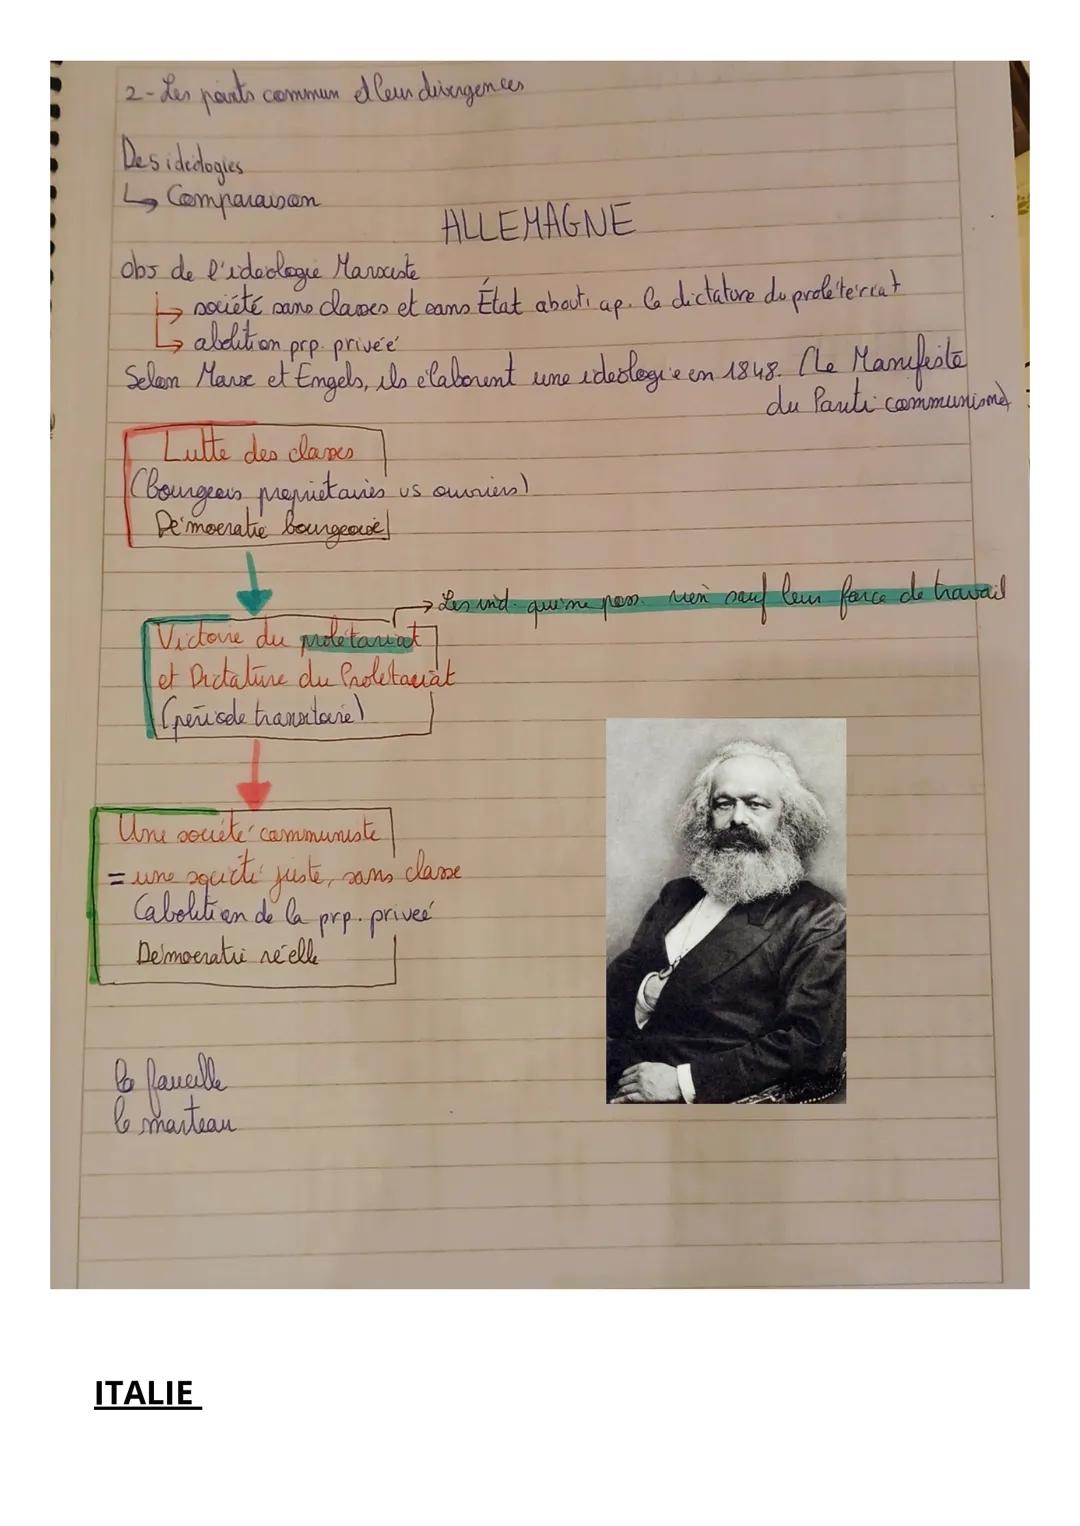 2- Les points commun et leur divergences
Des idéologies
↳ Comparaison
ALLEMAGNE
obj de l'idéologie Marxiste
↳ société sans classes et sans État abouti ap. la dictature du prolétérriat
↳ abolition prp. privée
Selon Marx et Engels, ils élaborent une idéologie en 1848. (Le Manifeste
du Parti communisme)
Lutte des classes
(bourgeois propriétaires vs ouvriers)
Démocratie bourgeoise
→ Les ind. qui ne poss. rien sauf leur force de travail
Victoire du prolétariat
et Dictature du Prolétariat
(période transitoire)
Une société communiste
= une société juste, sans classe
(abolition de la prp. privée
Démocratie réelle
la faucille
le marteau
ITALIE